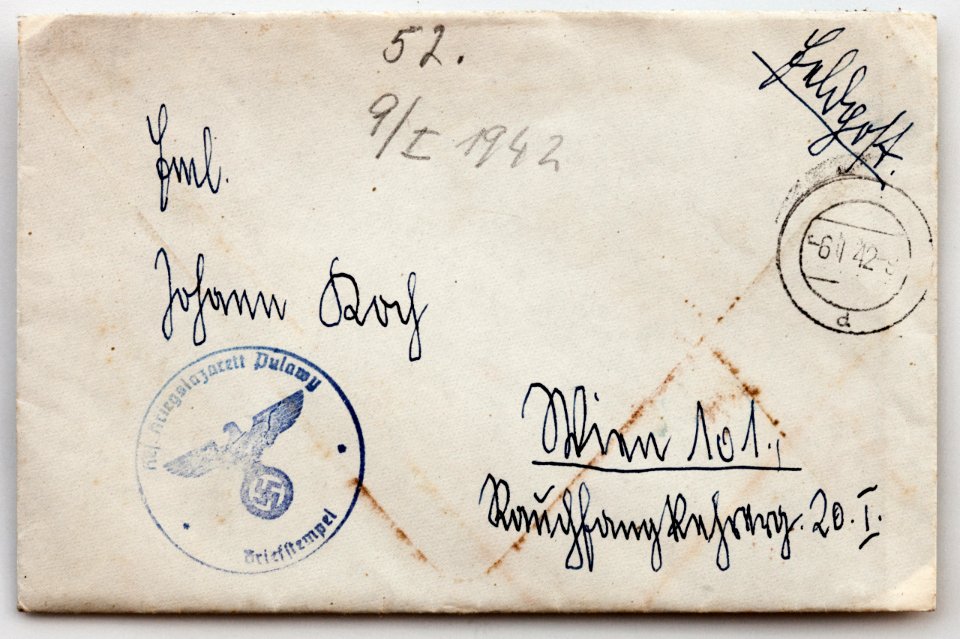 52.
9/I 1942
Feldpost.
Fml.
Johann Koch
-6.1.42-9
d
Res. Kriegslazarett Pulawy
Briefstempel
Wien 101.,
Rauchfangkehrerg. 20.I.